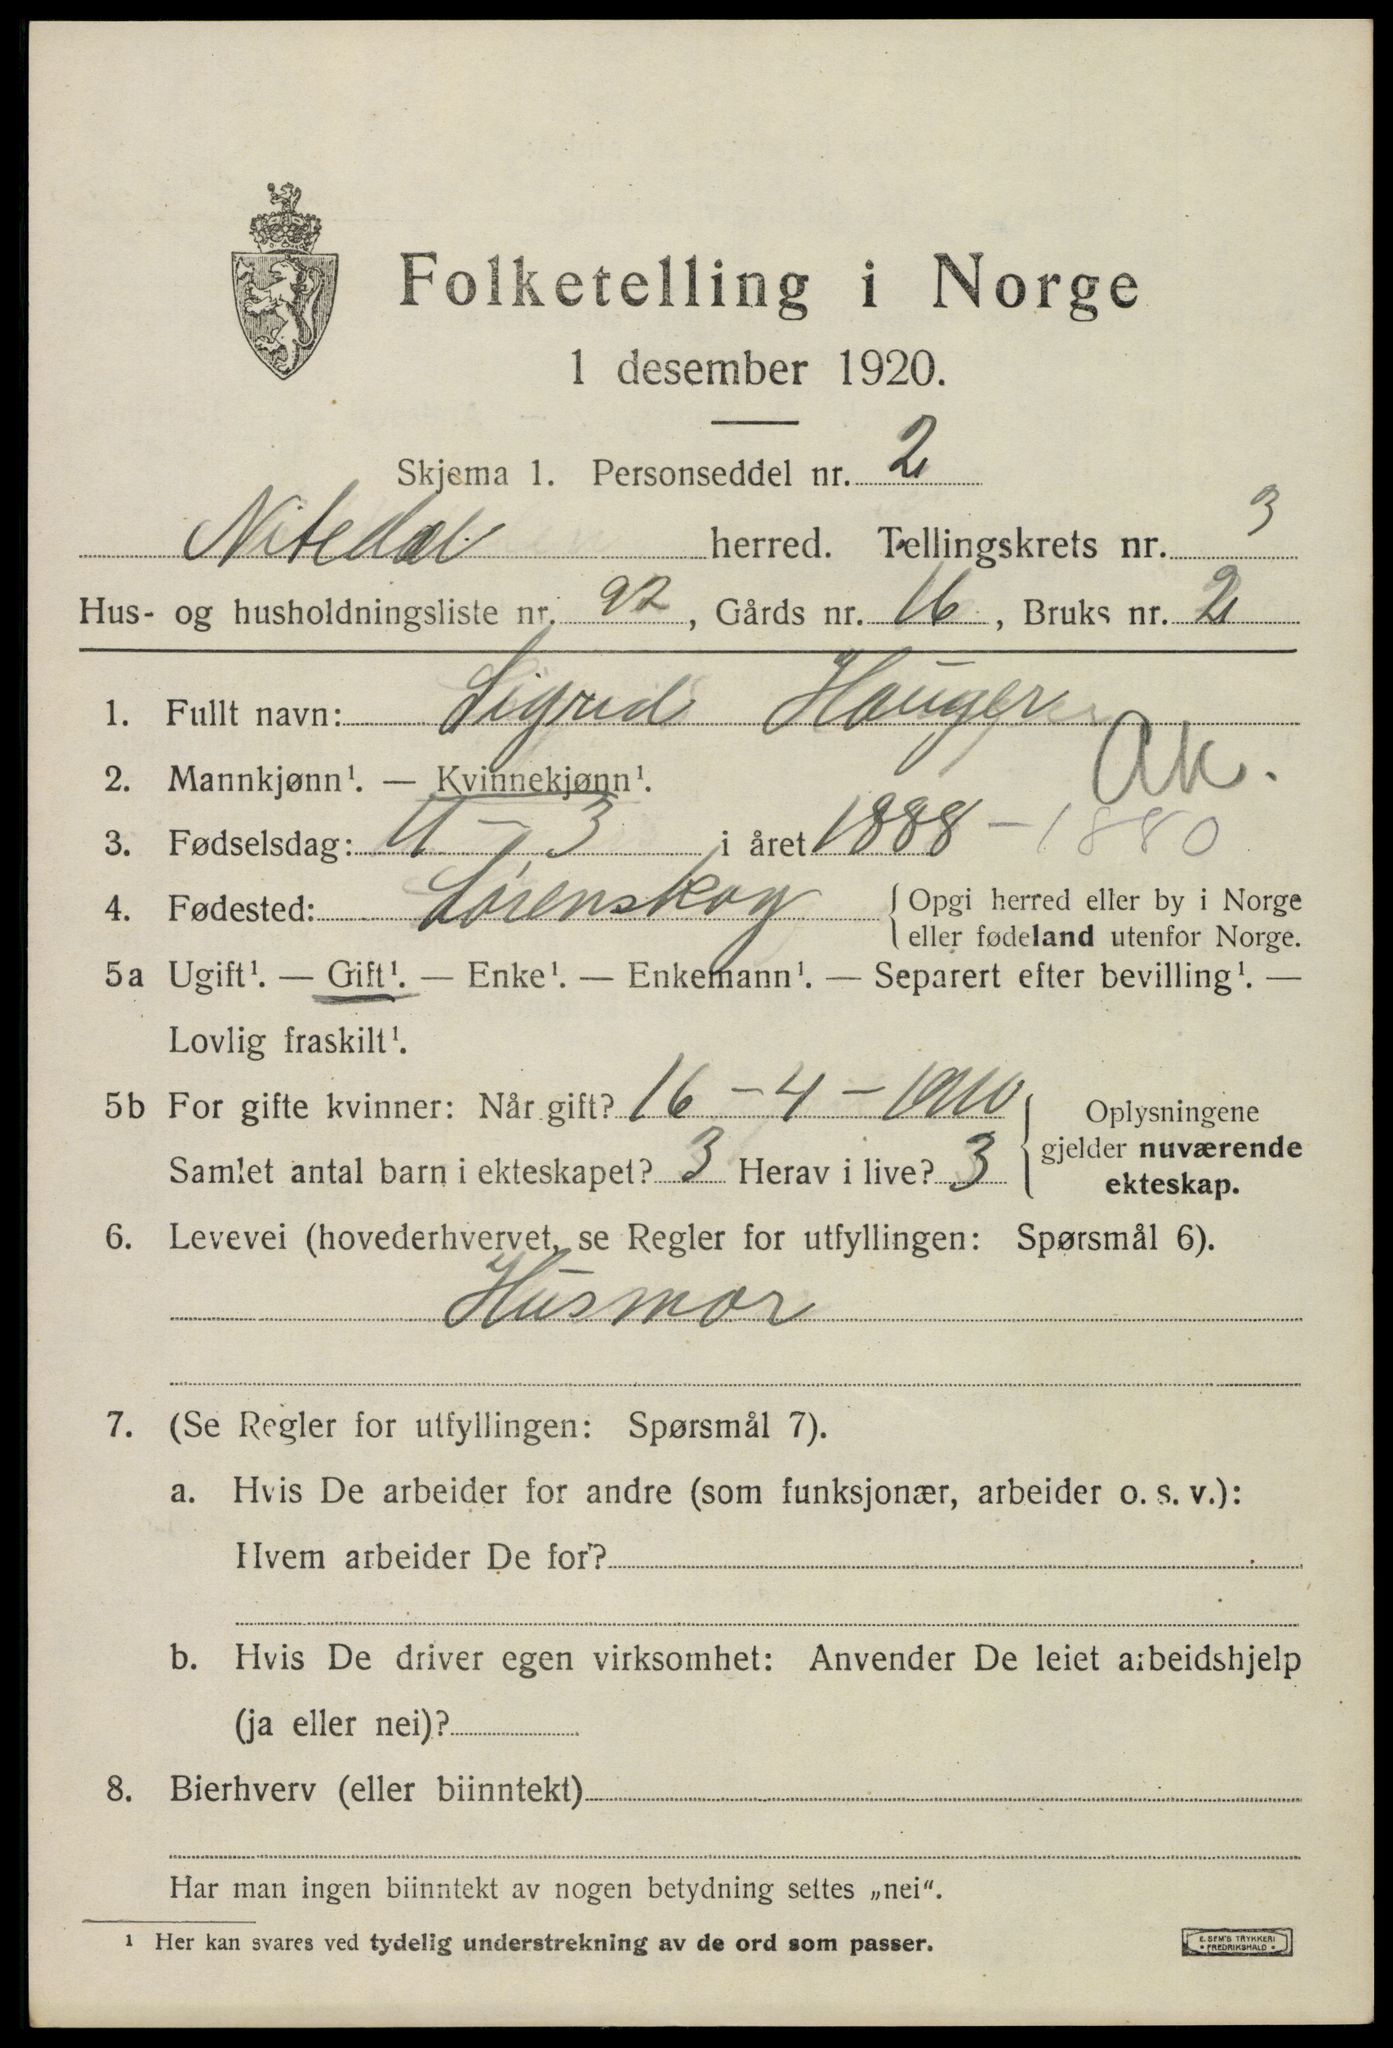 Folketelling i Norge
1 desember 1920.
Skjema 1. Personseddel nr. 2
Nitedal herred. Tellingskrets nr. 3
Hus- og husholdningsliste nr. 92, Gårds nr. 16, Bruks nr. 2
1. Fullt navn: Sigrid Hauger
Ak.
2. Mannkjønn¹. — Kvinnekjønn¹.
3. Fødselsdag: 11 - 3 i året 1888 - 1880
4. Fødested: Lørenskog { Opgi herred eller by i Norge
eller fødeland utenfor Norge.
5a Ugift¹. — Gift¹. — Enke¹. — Enkemann¹. — Separert efter bevilling¹. —
Lovlig fraskilt¹.
5b For gifte kvinner: Når gift? 16 - 4 - 1910
Samlet antal barn i ekteskapet? 3 Herav i live? 3
Oplysningene
gjelder nuværende
ekteskap.
6. Levevei (hovederhvervet, se Regler for utfyllingen: Spørsmål 6).
Husmor
7. (Se Regler for utfyllingen: Spørsmål 7).
a. Hvis De arbeider for andre (som funksjonær, arbeider o. s. v.):
Hvem arbeider De for?
b. Hvis De driver egen virksomhet: Anvender De leiet arbeidshjelp
(ja eller nei)?
8. Bierhverv (eller biinntekt)
Har man ingen biinntekt av nogen betydning settes „nei“.
¹ Her kan svares ved tydelig understrekning av de ord som passer.
E. SEM'S TRYKKERI
FREDRIKSHALD